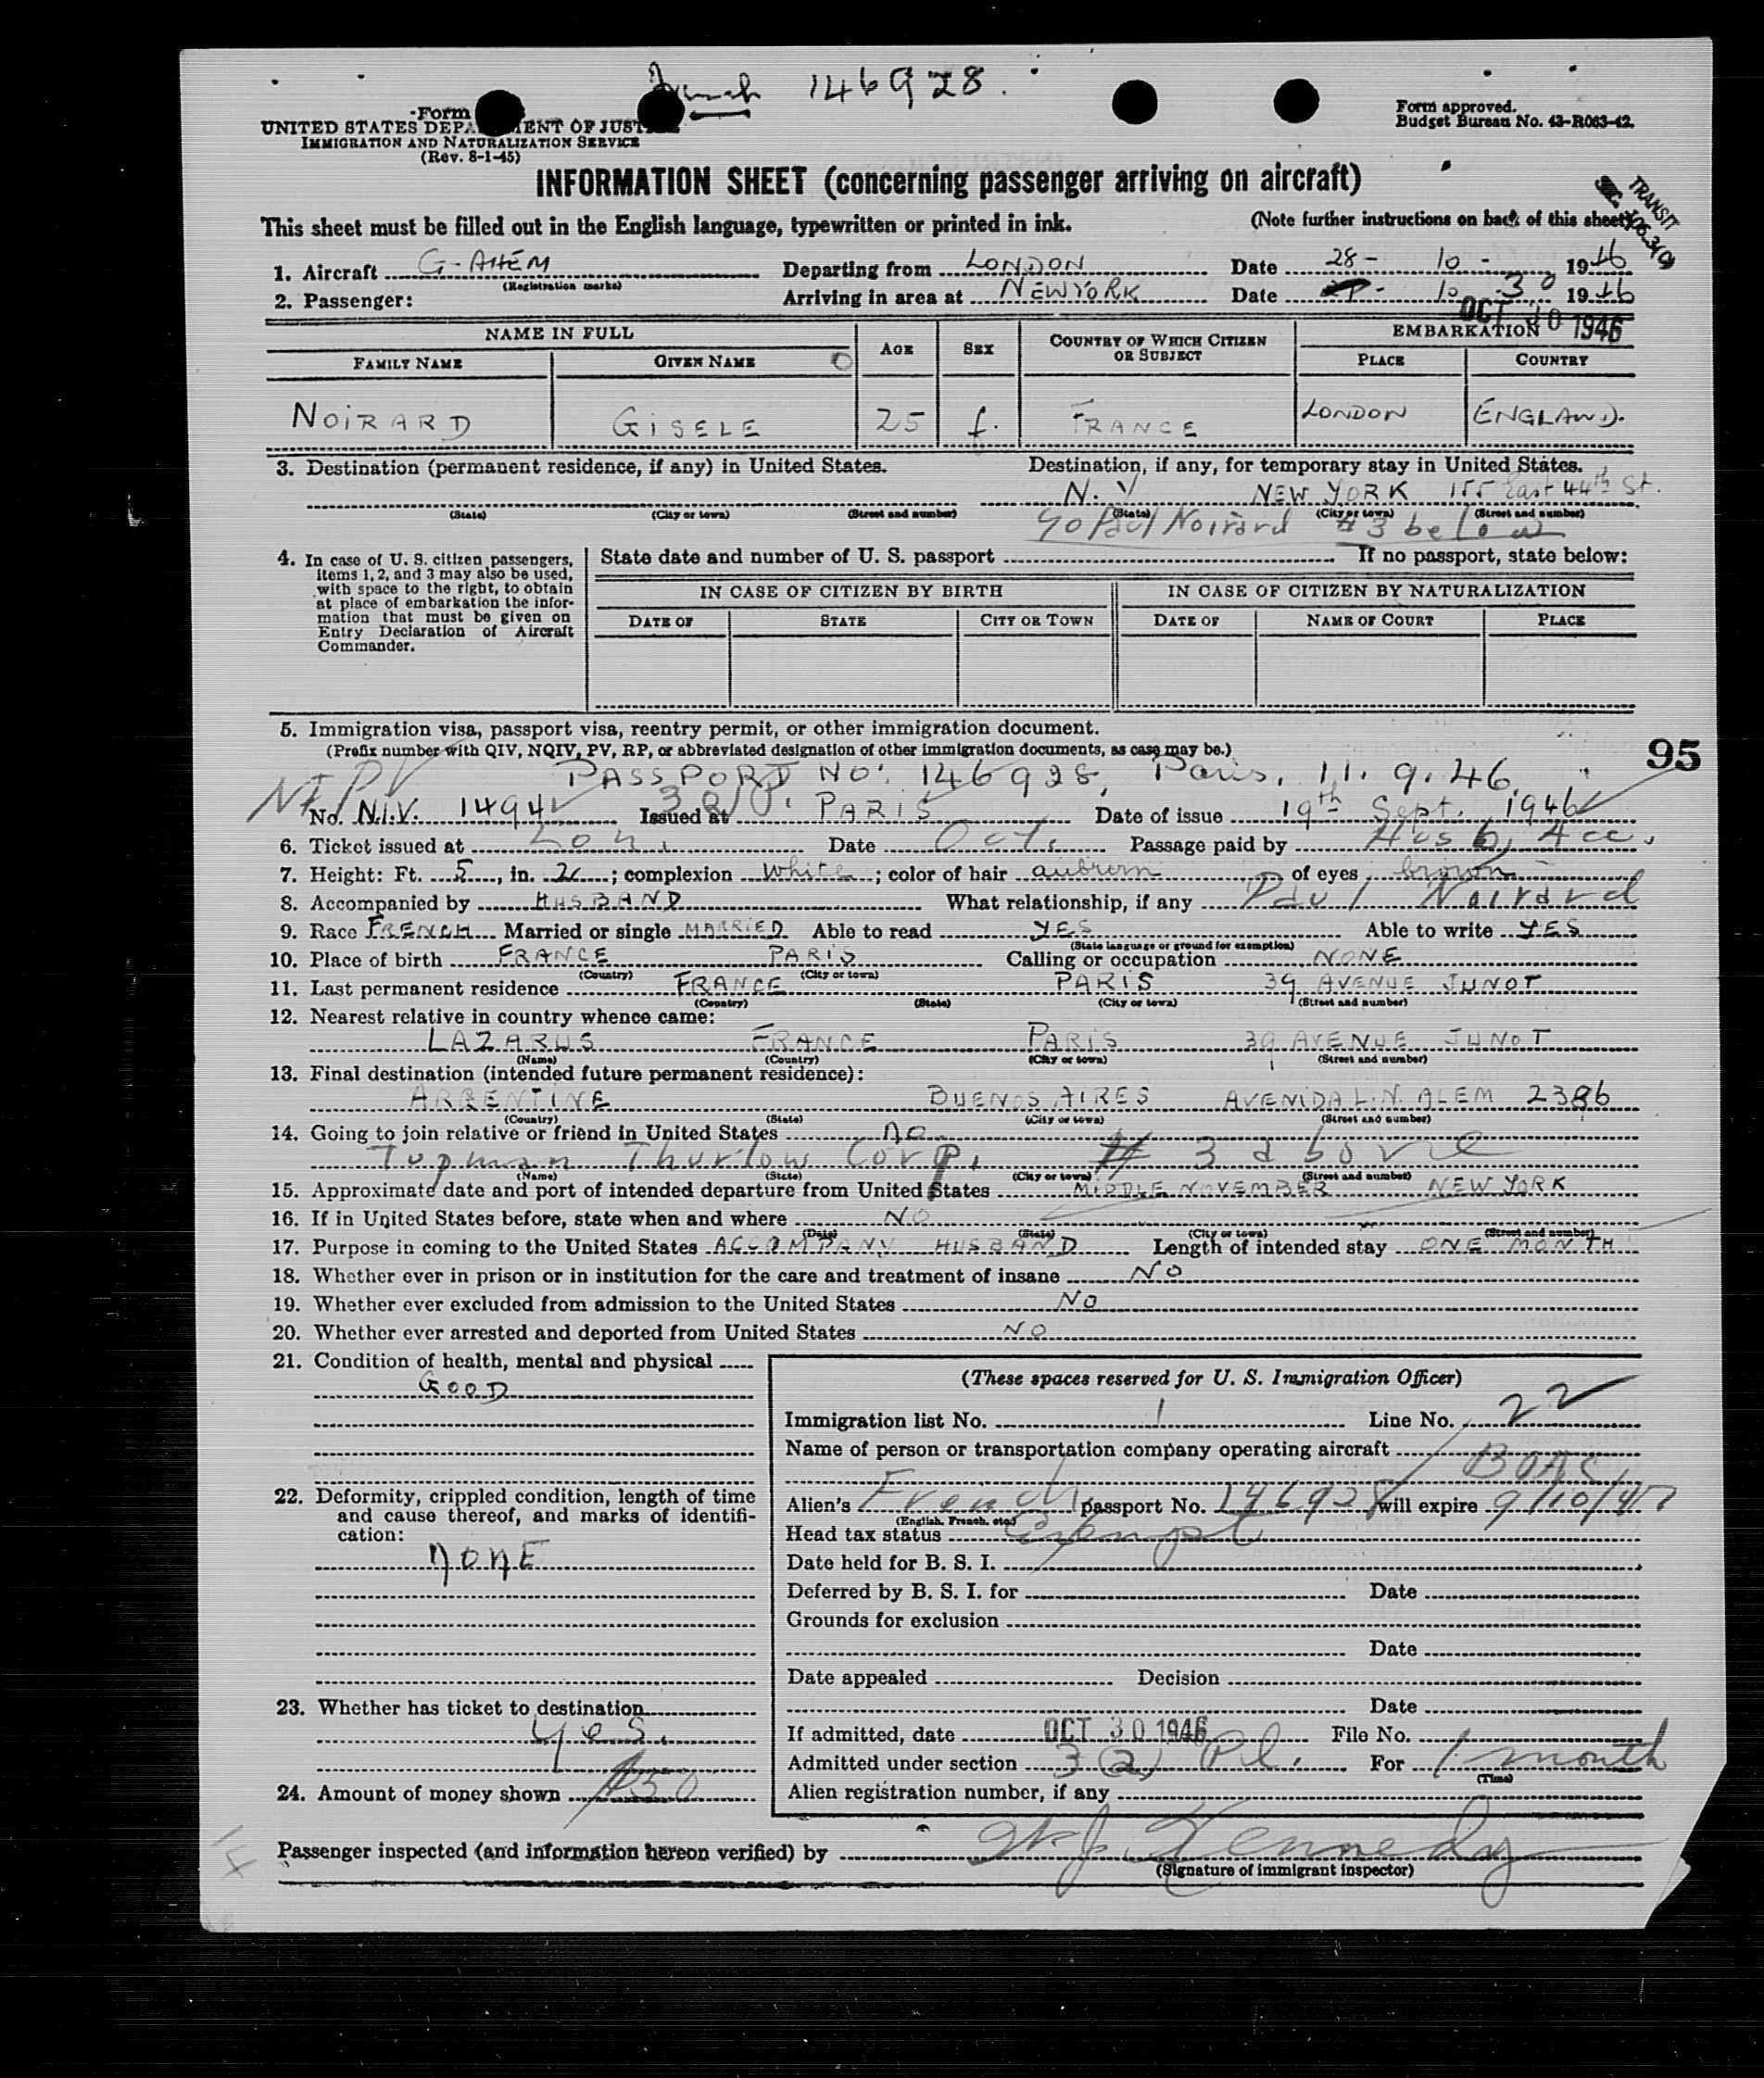 French 146928.
Form
UNITED STATES DEPARTMENT OF JUSTICE
IMMIGRATION AND NATURALIZATION SERVICE
(Rev. 8-1-45)
Form approved.
Budget Bureau No. 43-R063-42.
INFORMATION SHEET (concerning passenger arriving on aircraft)
TRANSIT
This sheet must be filled out in the English language, typewritten or printed in ink. (Note further instructions on back of this sheet)
1. Aircraft G-AHEM Departing from LONDON Date 28- 10- 1946
(Registration marks)
2. Passenger: Arriving in area at NEW YORK Date 10 30 1946
OCT 30 1946
NAME IN FULL AGE SEX COUNTRY OF WHICH CITIZEN OR SUBJECT EMBARKATION
FAMILY NAME GIVEN NAME PLACE COUNTRY
NOIRARD GISELE 25 f. FRANCE LONDON ENGLAND.
3. Destination (permanent residence, if any) in United States. Destination, if any, for temporary stay in United States.
N.Y NEW YORK 155 East 44th St.
(State) (City or town) (Street and number) (State) (City or town) (Street and number)
Paul Noirard # 3 below
4. In case of U. S. citizen passengers, items 1, 2, and 3 may also be used, with space to the right, to obtain at place of embarkation the information that must be given on Entry Declaration of Aircraft Commander.
State date and number of U. S. passport If no passport, state below:
IN CASE OF CITIZEN BY BIRTH IN CASE OF CITIZEN BY NATURALIZATION
DATE OF STATE CITY OR TOWN DATE OF NAME OF COURT PLACE
5. Immigration visa, passport visa, reentry permit, or other immigration document.
(Prefix number with QIV, NQIV, PV, RP, or abbreviated designation of other immigration documents, as case may be.)
95
PASSPORT NO: 146928, Paris, 11.9.46.
No. N.I.V. 1494 Issued at PARIS Date of issue 19th Sept. 1946
6. Ticket issued at Lon. Date Oct. Passage paid by Husb, Acc.
7. Height: Ft. 5, in. 2; complexion White; color of hair auburn of eyes brown
8. Accompanied by HUSBAND What relationship, if any Paul Noirard
9. Race FRENCH Married or single MARRIED Able to read YES Able to write YES
(State language or ground for exemption)
10. Place of birth FRANCE PARIS Calling or occupation NONE
(Country) (City or town)
11. Last permanent residence FRANCE PARIS 39 AVENUE JUNOT
(Country) (State) (City or town) (Street and number)
12. Nearest relative in country whence came:
LAZARUS FRANCE PARIS 39 AVENUE JUNOT
(Name) (Country) (City or town) (Street and number)
13. Final destination (intended future permanent residence):
ARGENTINE BUENOS AIRES AVENIDA L.N. ALEM 2386
(Country) (State) (City or town) (Street and number)
14. Going to join relative or friend in United States no
Tupman Thurlow Corp. # 3 above
(Name) (State) (City or town) (Street and number)
15. Approximate date and port of intended departure from United States MIDDLE NOVEMBER NEW YORK
16. If in United States before, state when and where NO
(Date) (State) (City or town) (Street and number)
17. Purpose in coming to the United States ACCOMPANY HUSBAND Length of intended stay ONE MONTH
18. Whether ever in prison or in institution for the care and treatment of insane NO
19. Whether ever excluded from admission to the United States NO
20. Whether ever arrested and deported from United States NO
21. Condition of health, mental and physical
GOOD
22. Deformity, crippled condition, length of time and cause thereof, and marks of identification:
NONE
23. Whether has ticket to destination
yes.
24. Amount of money shown $50
(These spaces reserved for U. S. Immigration Officer)
Immigration list No. 1 Line No. 22
Name of person or transportation company operating aircraft
BOAC
Alien's French passport No. 146928 will expire 9/10/47
(English, French, etc.)
Head tax status Exempt
Date held for B. S. I.
Deferred by B. S. I. for Date
Grounds for exclusion
Date
Date appealed Decision
Date
If admitted, date OCT 30 1946 File No.
Admitted under section 3(2) Pl. For 1 month
(Time)
Alien registration number, if any
Passenger inspected (and information hereon verified) by Kennedy
(Signature of immigrant inspector)